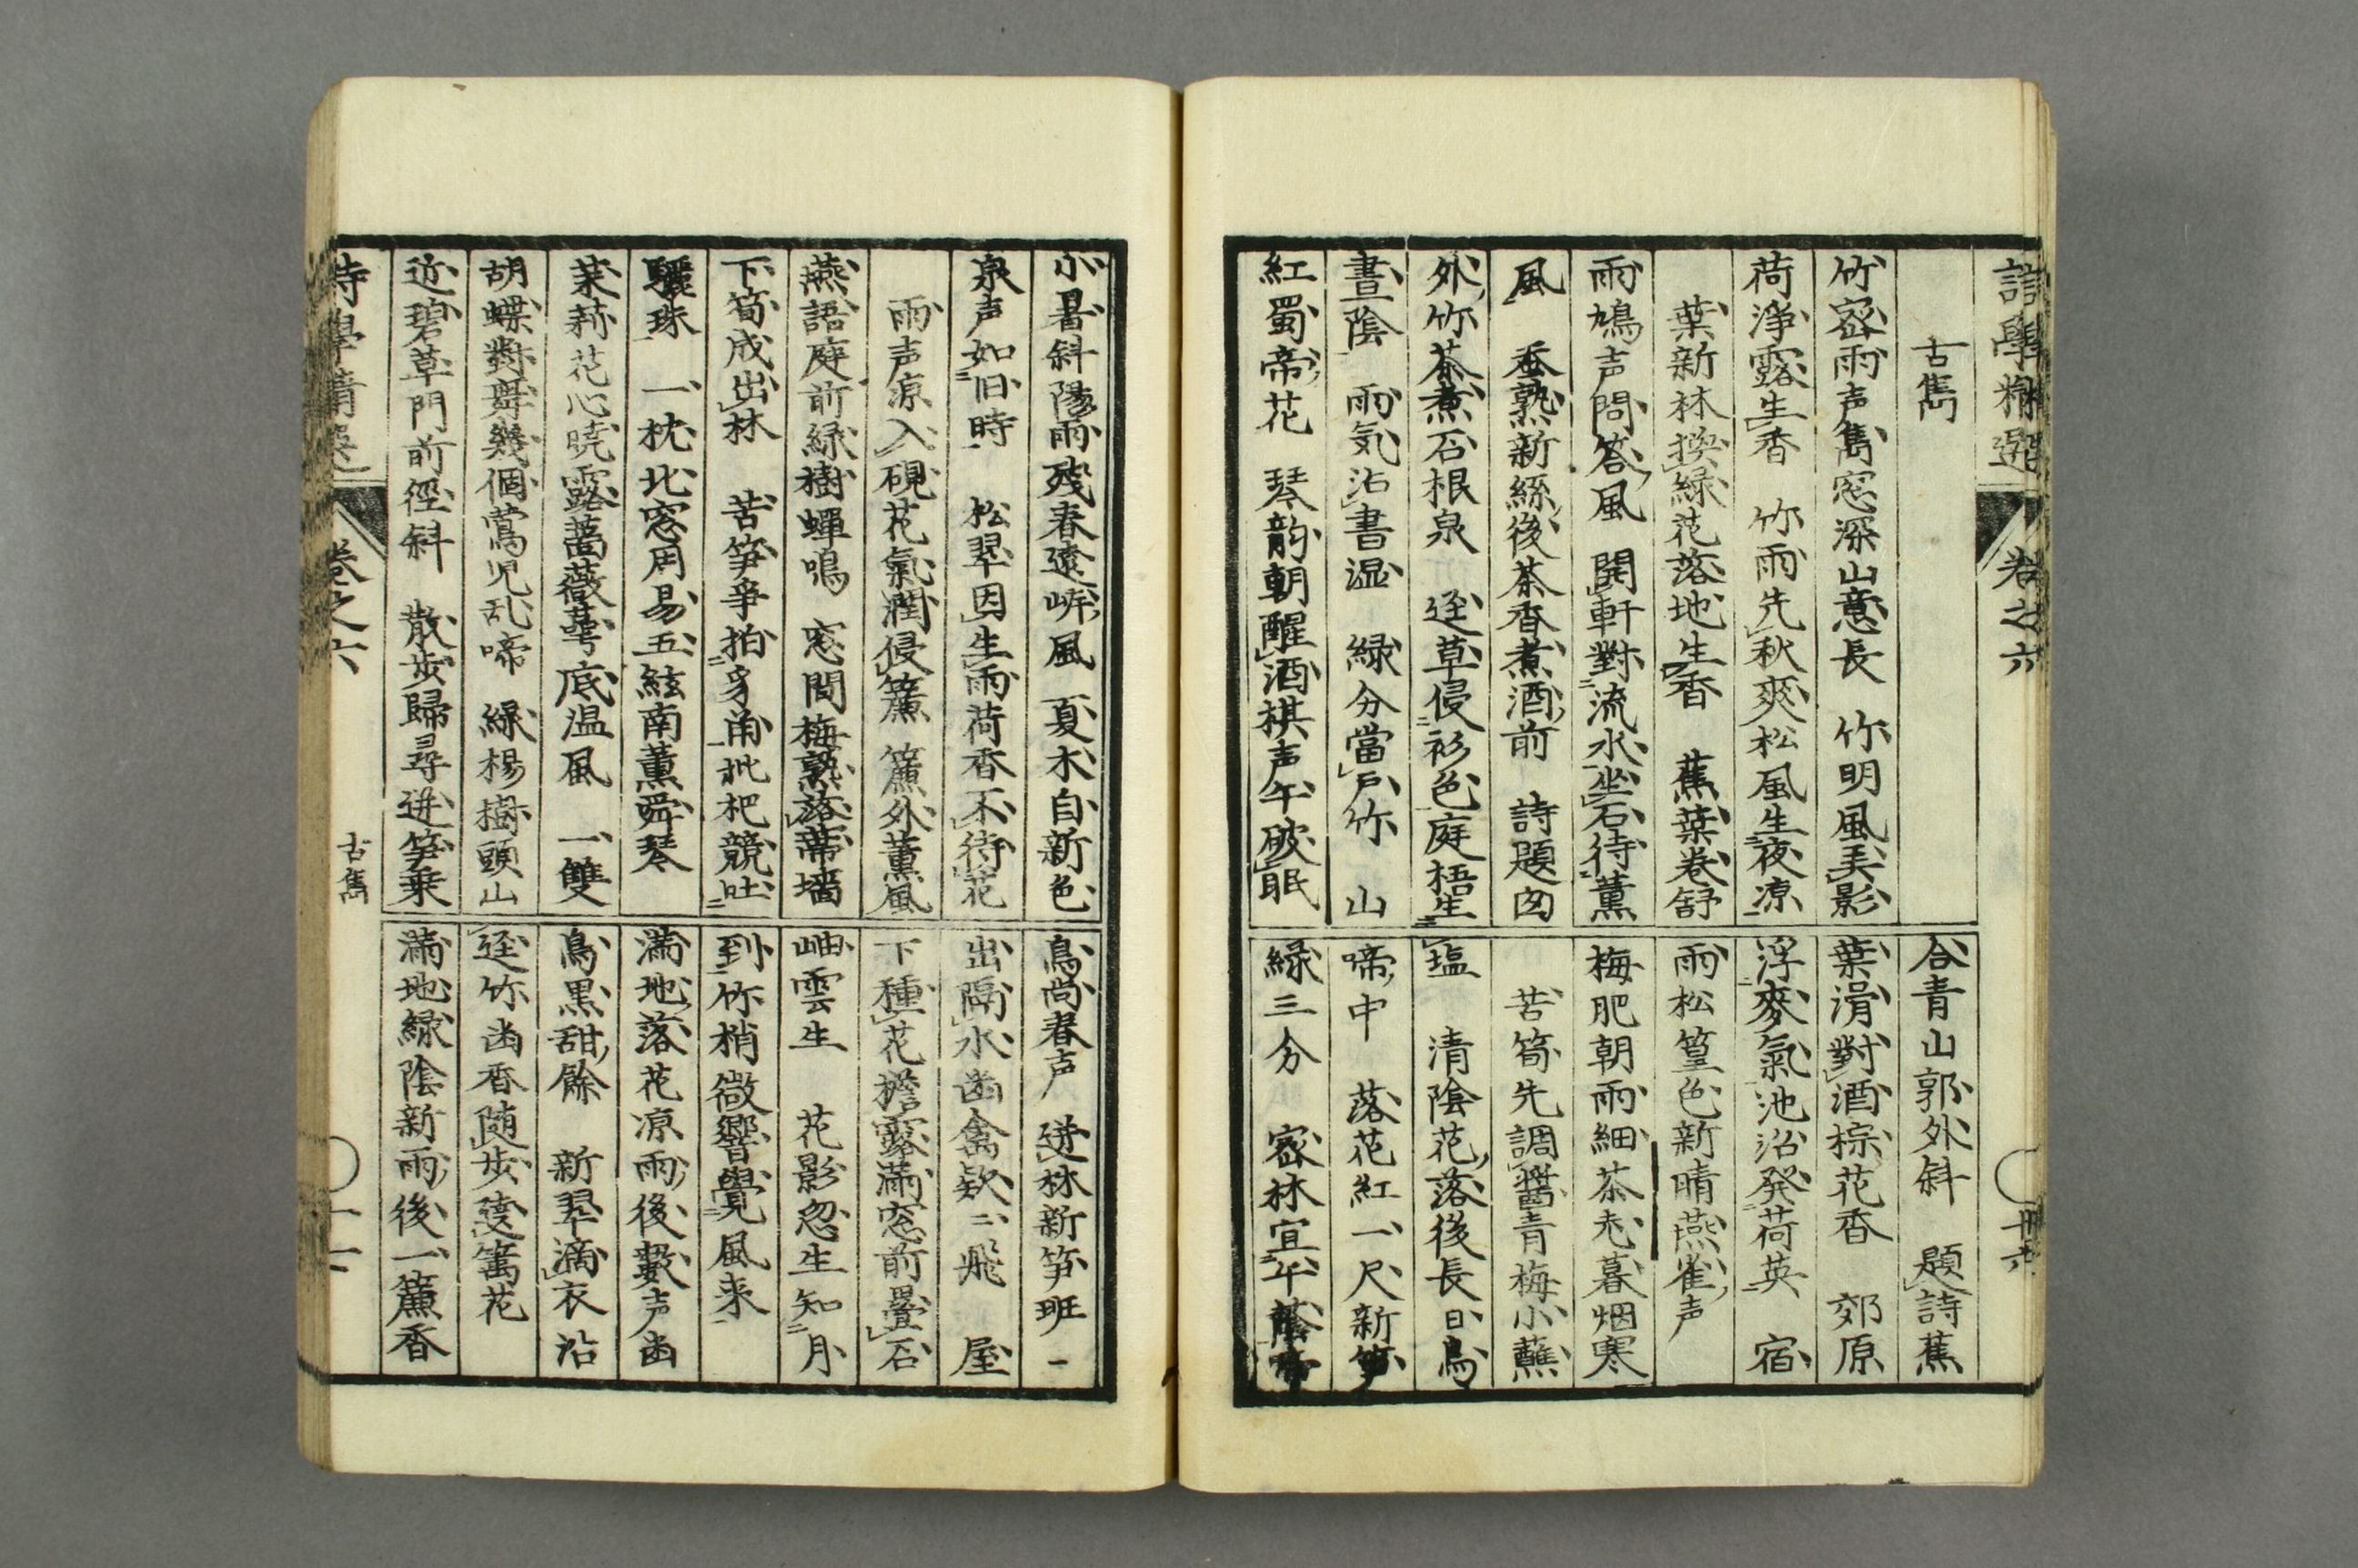 詩學精選 卷之六
古雋
竹密雨声雋窓深山意長 竹明風美影
荷淨露生香 竹雨先秋爽松風生夜凉
葉新林換緑花落地生香 蕉葉巻舒
雨鳩声問答風 開軒對流水坐石待薫
風 蚕熟新絲後茶香煮酒前 詩題囱
外竹茶煮石根泉 迳草侵衫色庭梧生
晝陰 雨気沾書湿 緑分當戸竹 山
紅蜀帝花 琴韵朝醒酒棋声午破眠
合青山郭外斜 題詩蕉
葉滑對酒棕花香 郊原
浮麥氣池沼発荷英 宿
雨松篁色新晴燕雀声
梅肥朝雨細茶老暮烟寒
苦筍先調醤青梅小蘸
塩 清陰花落後長日鳥
啼中 落花紅一尺新笋
緑三分 密林宜午
小暑斜陽雨残春遠岸風 夏木自新色
泉声如旧時 松翠因生雨荷香不待花
雨声凉入硯花氣潤侵簾 簾外薫風
燕語庭前緑樹蟬鳴 窓間梅熟落蒂墻
下筍成出林 苦笋争抽牙角枇杷競吐
驪珠 一枕北窓周易五絃南薫舜琴
茉莉花心暁露薔薇萼底温風 一雙
胡蝶對舞幾個鶯児乱啼 緑楊樹頭山
近碧草門前徑斜 散歩歸尋迸笋乗
鳥尚春声 迸林新笋班一
出隔水幽禽欵二飛 屋
下種花檐露滿窓前畳石
岫雲生 花影忽生知月
到竹梢微響覺風来
滿地落花凉雨後數声幽
鳥黒甜餘 新翠滴衣沿
迳竹幽香随歩遶籬花
滿地緑陰新雨後一簾香
詩學精選 卷之六 古雋